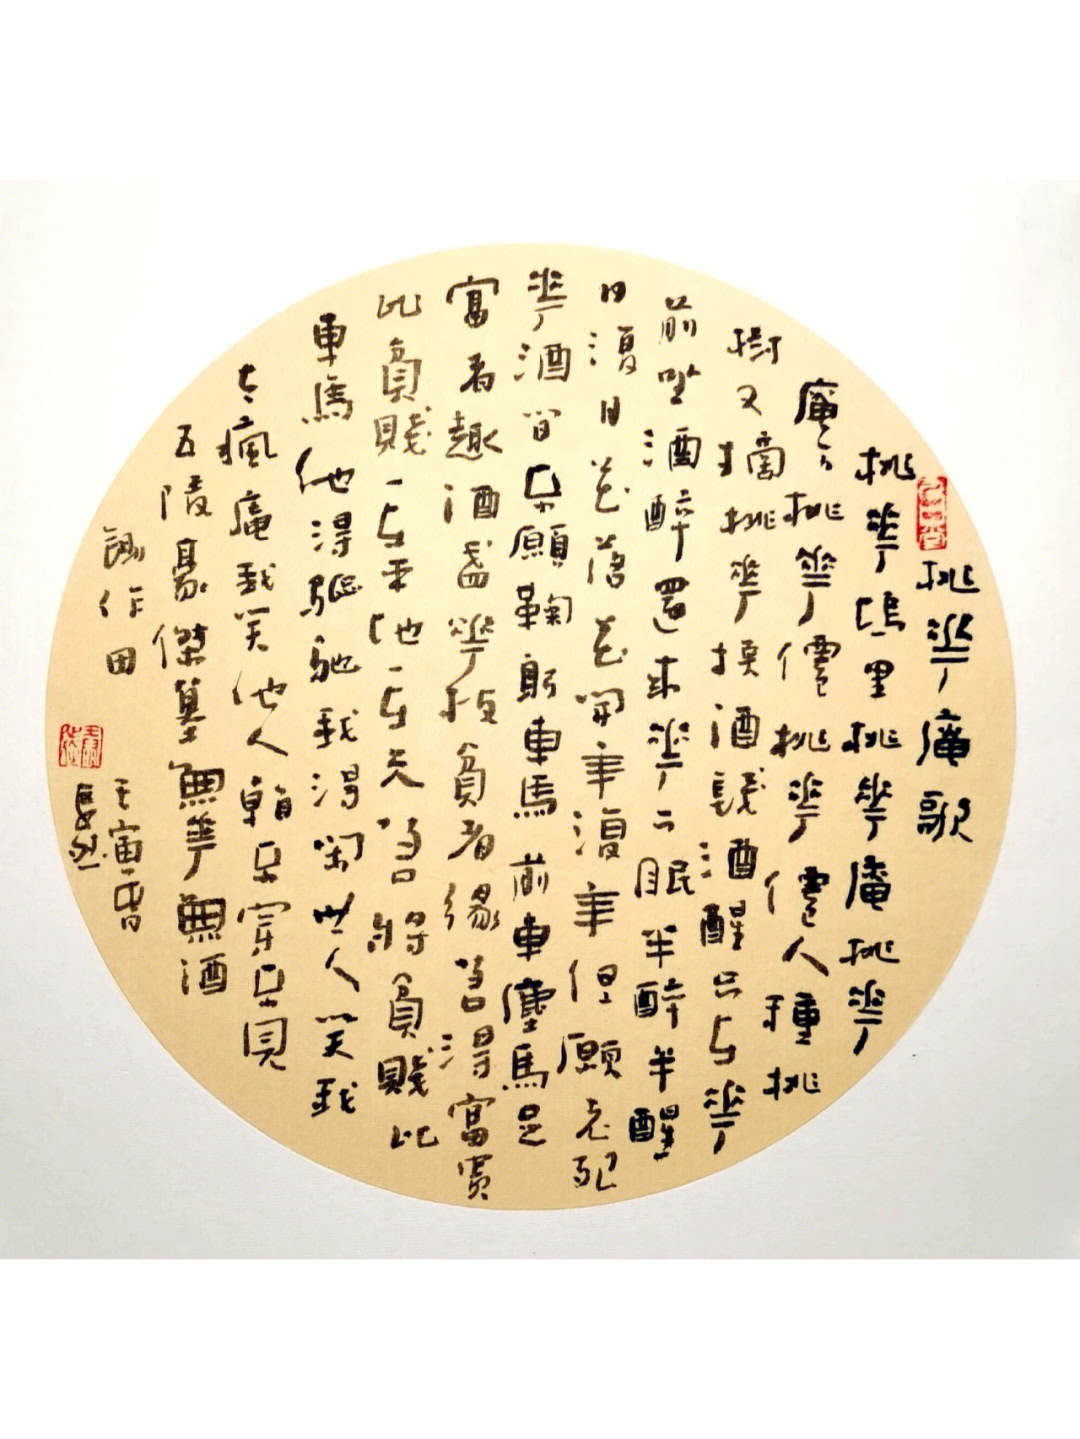 桃花庵歌
桃花塢里桃花庵桃花
庵下桃花僊桃花僊人種桃
樹又摘桃花換酒錢酒醒只在花
前坐酒醉還來花下眠半醉半醒
日復日花落花開年復年但願老死
花酒間不願鞠躬車馬前車塵馬足
富者趣酒盞花枝貧者緣若得富貴
比貧賤一在平地一在天若將貧賤比
車馬他得驅馳我得閑世人笑我
太瘋癲我笑他人看不穿不見
五陵豪傑墓無花無酒
鋤作田
壬寅春